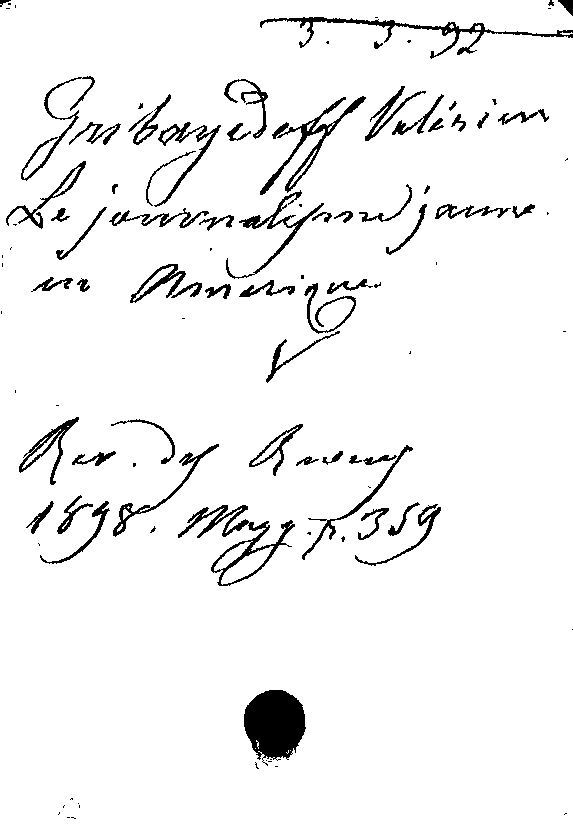 3. 3. 92
Gribayedoff Valérien
Le journalisme jaune
en Amérique
Rev. des Revues
1898. Magg. p. 359